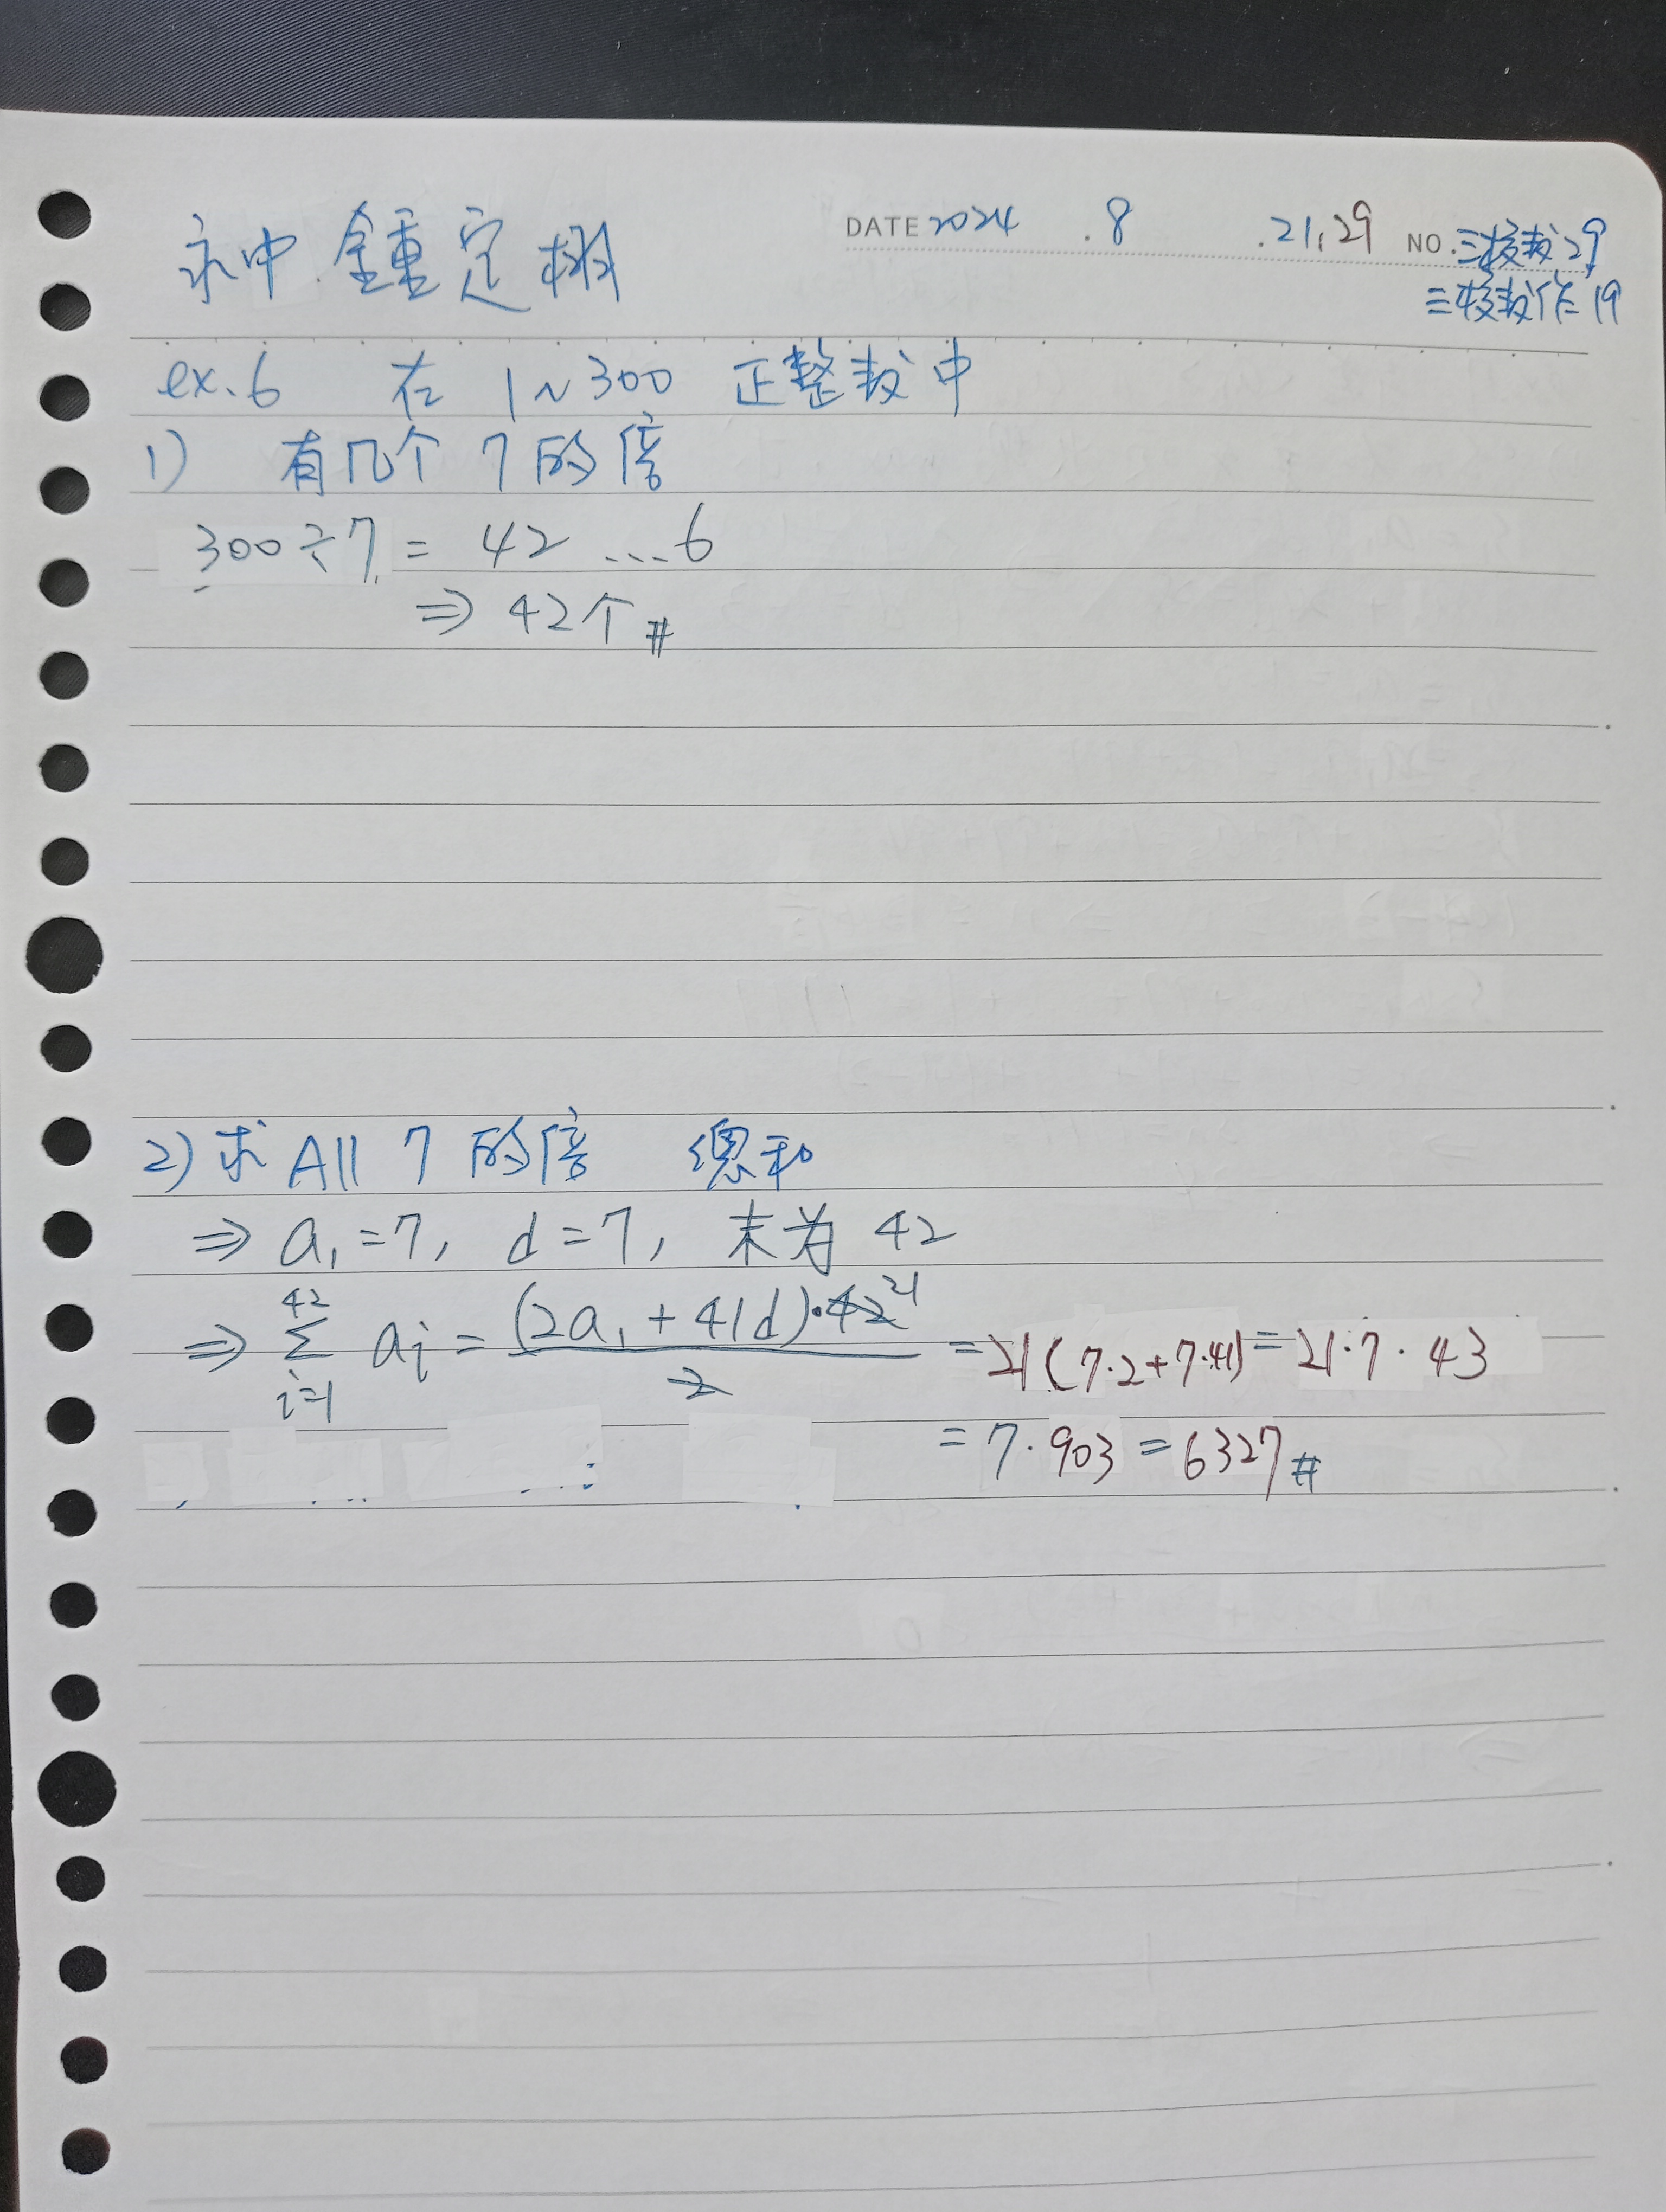 永中 鍾定栩
DATE 2024 .8 .21,29 NO. 三校数29
三校数作19
ex.6 在 1~300 正整数中
1) 有几个 7的倍
300÷7 = 42 ...6
⇒ 42个 #
2) 求 All 7 的倍 總和
⇒ a₁=7, d=7, 末为 42
⇒ \sum_{i=1}^{42} aᵢ = \frac{(2a₁+41d)·42^{21}}{2} = 21(7·2+7·41) = 21·7·43
= 7·903 = 6327 #